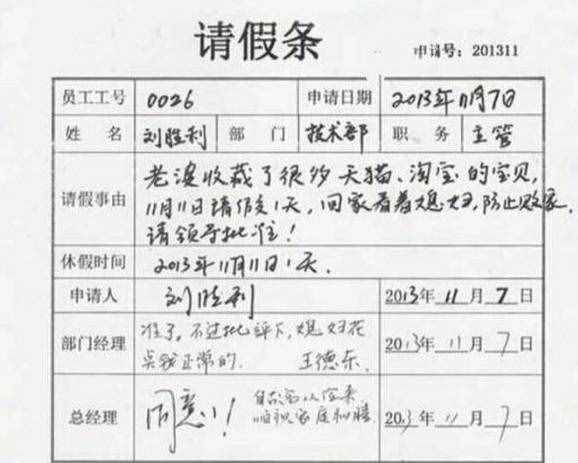 请假条
申请号：201311
员工工号 0026 申请日期 2013年11月7日
姓 名 刘胜利 部 门 技术部 职 务 主管
请假事由
老婆收藏了很多天猫、淘宝的宝贝，
11月11日请假1天，回家看着媳妇，防止败家。
请领导批准！
休假时间 2013年11月11日1天。
申请人 刘胜利 2013年11月7日
部门经理
准了，不过批评下，媳妇花
点钱正常的。 王德东 2013年11月7日
总经理 同意！
家庭和睦 2013年11月7日